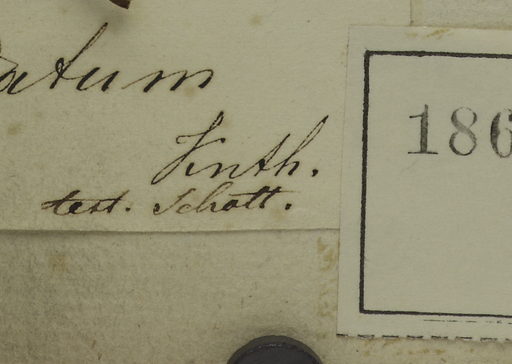 atum
Knth.
test. Schott.
186